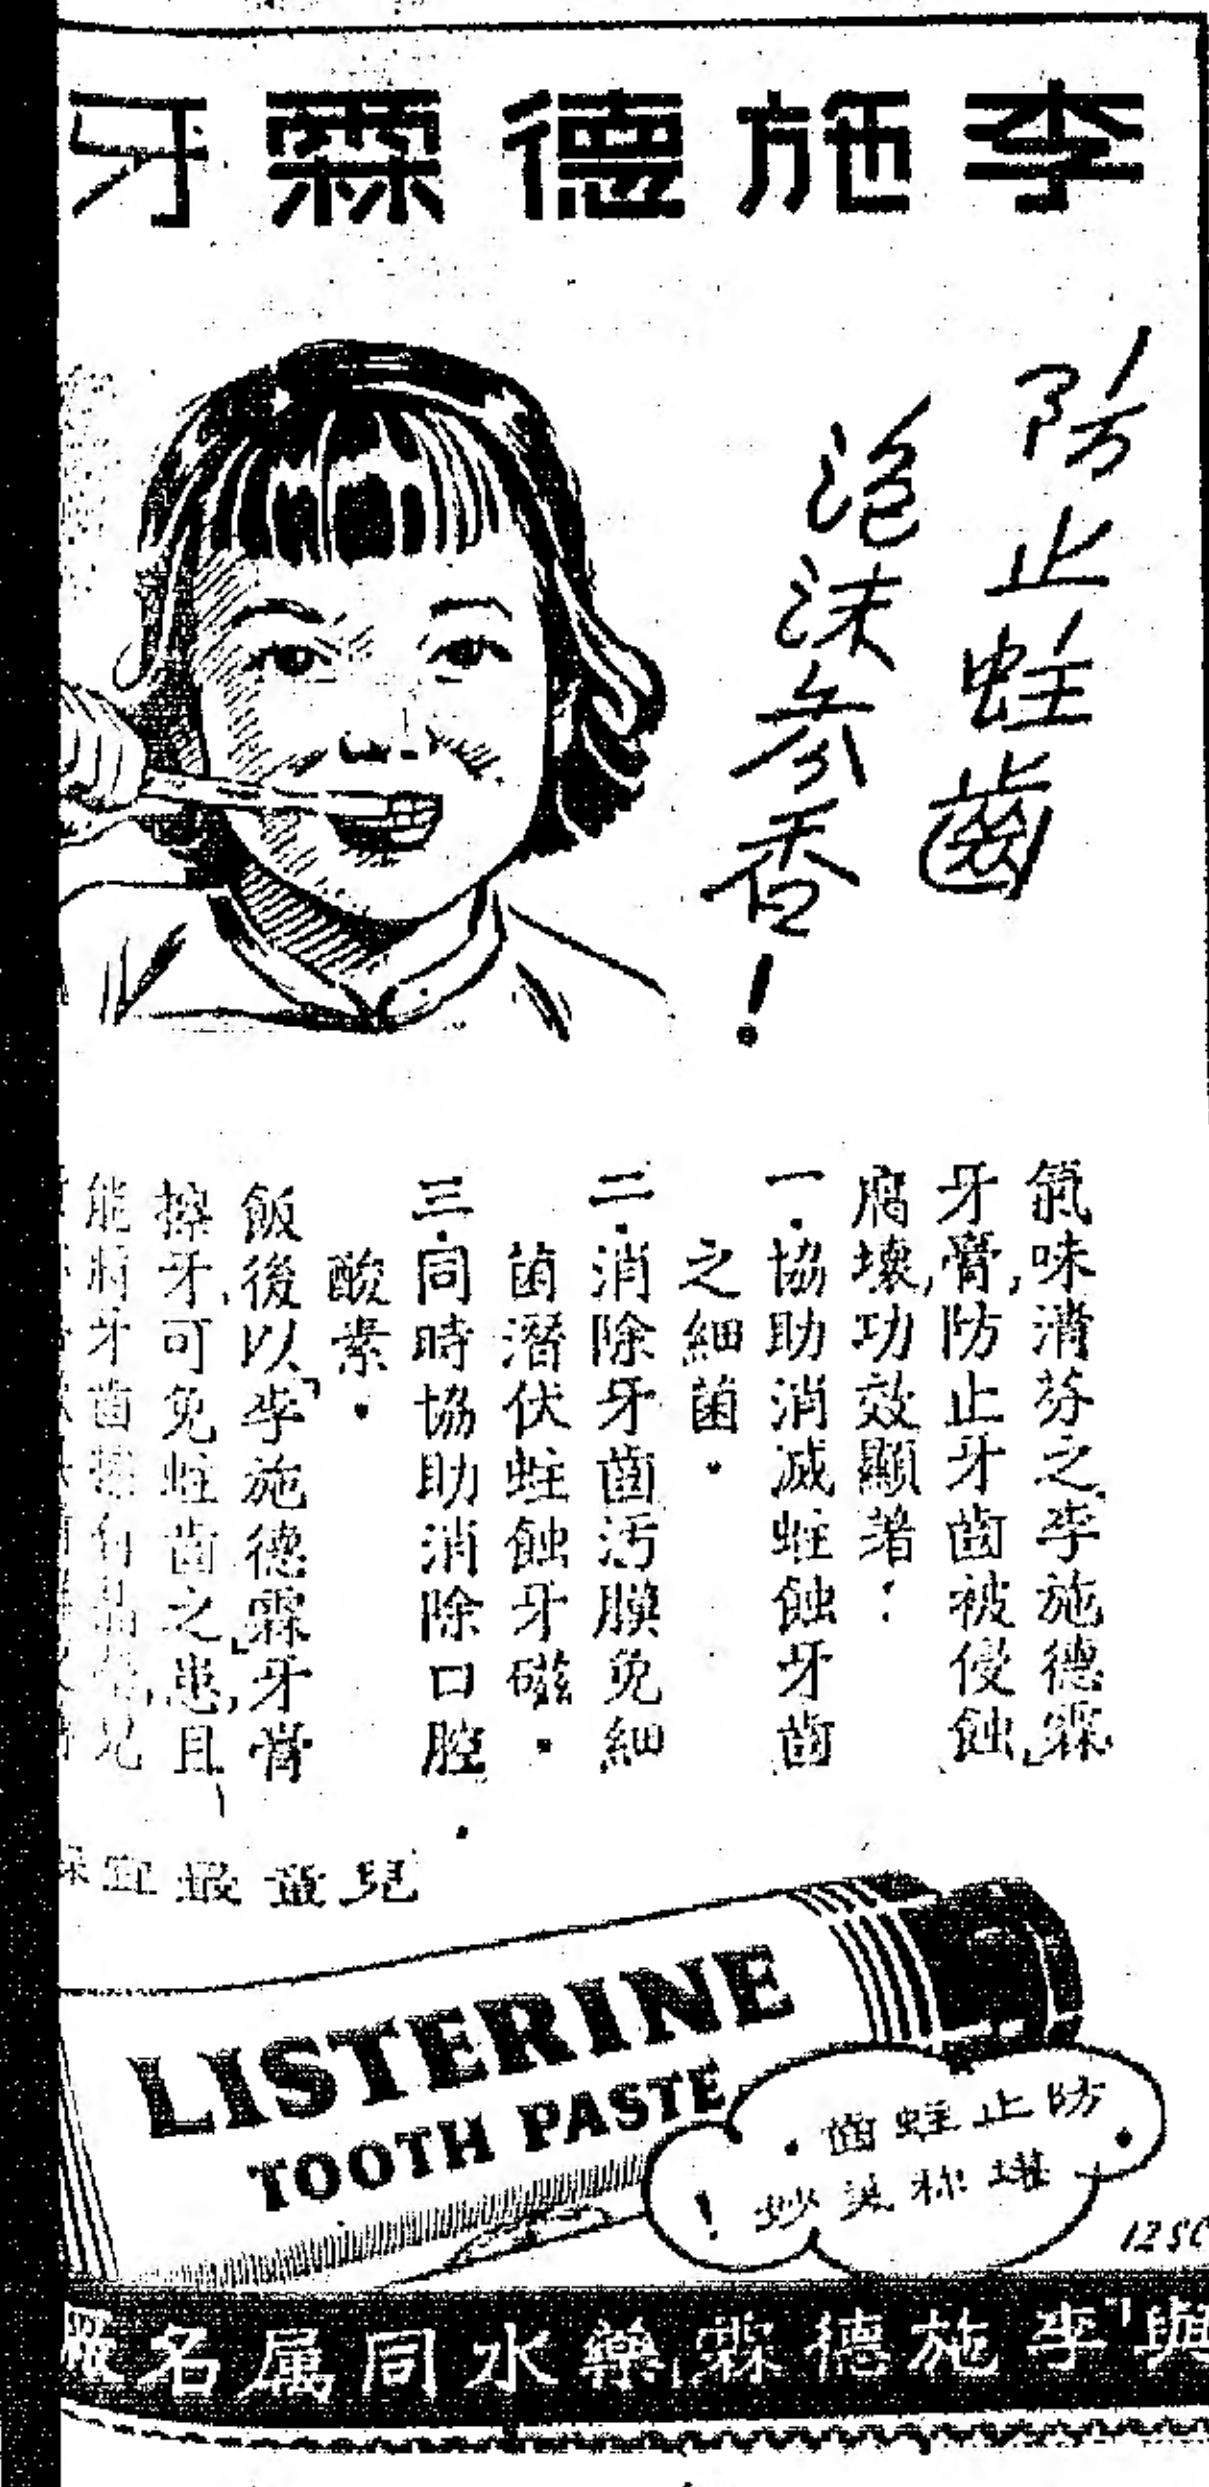 李施德霖牙
防止蛀齒
泡沫芬香！
氣味清芬之「李施德霖」
牙膏，防止牙齒被侵蝕
腐壞，功效顯著：
一．協助消滅蛀蝕牙齒
之細菌．
二．消除牙齒污膜免細
菌潛伏蛀蝕牙磁．
三．同時協助消除口腔
酸素．
飯後以「李施德霖」牙膏
擦牙，可免蛀齒之患，且
能將牙齒擦
兒童最宜
LISTERINE
TOOTH PASTE
防止蛀齒．
堪稱美妙！
12SC
與「李施德霖」藥水同屬名廠